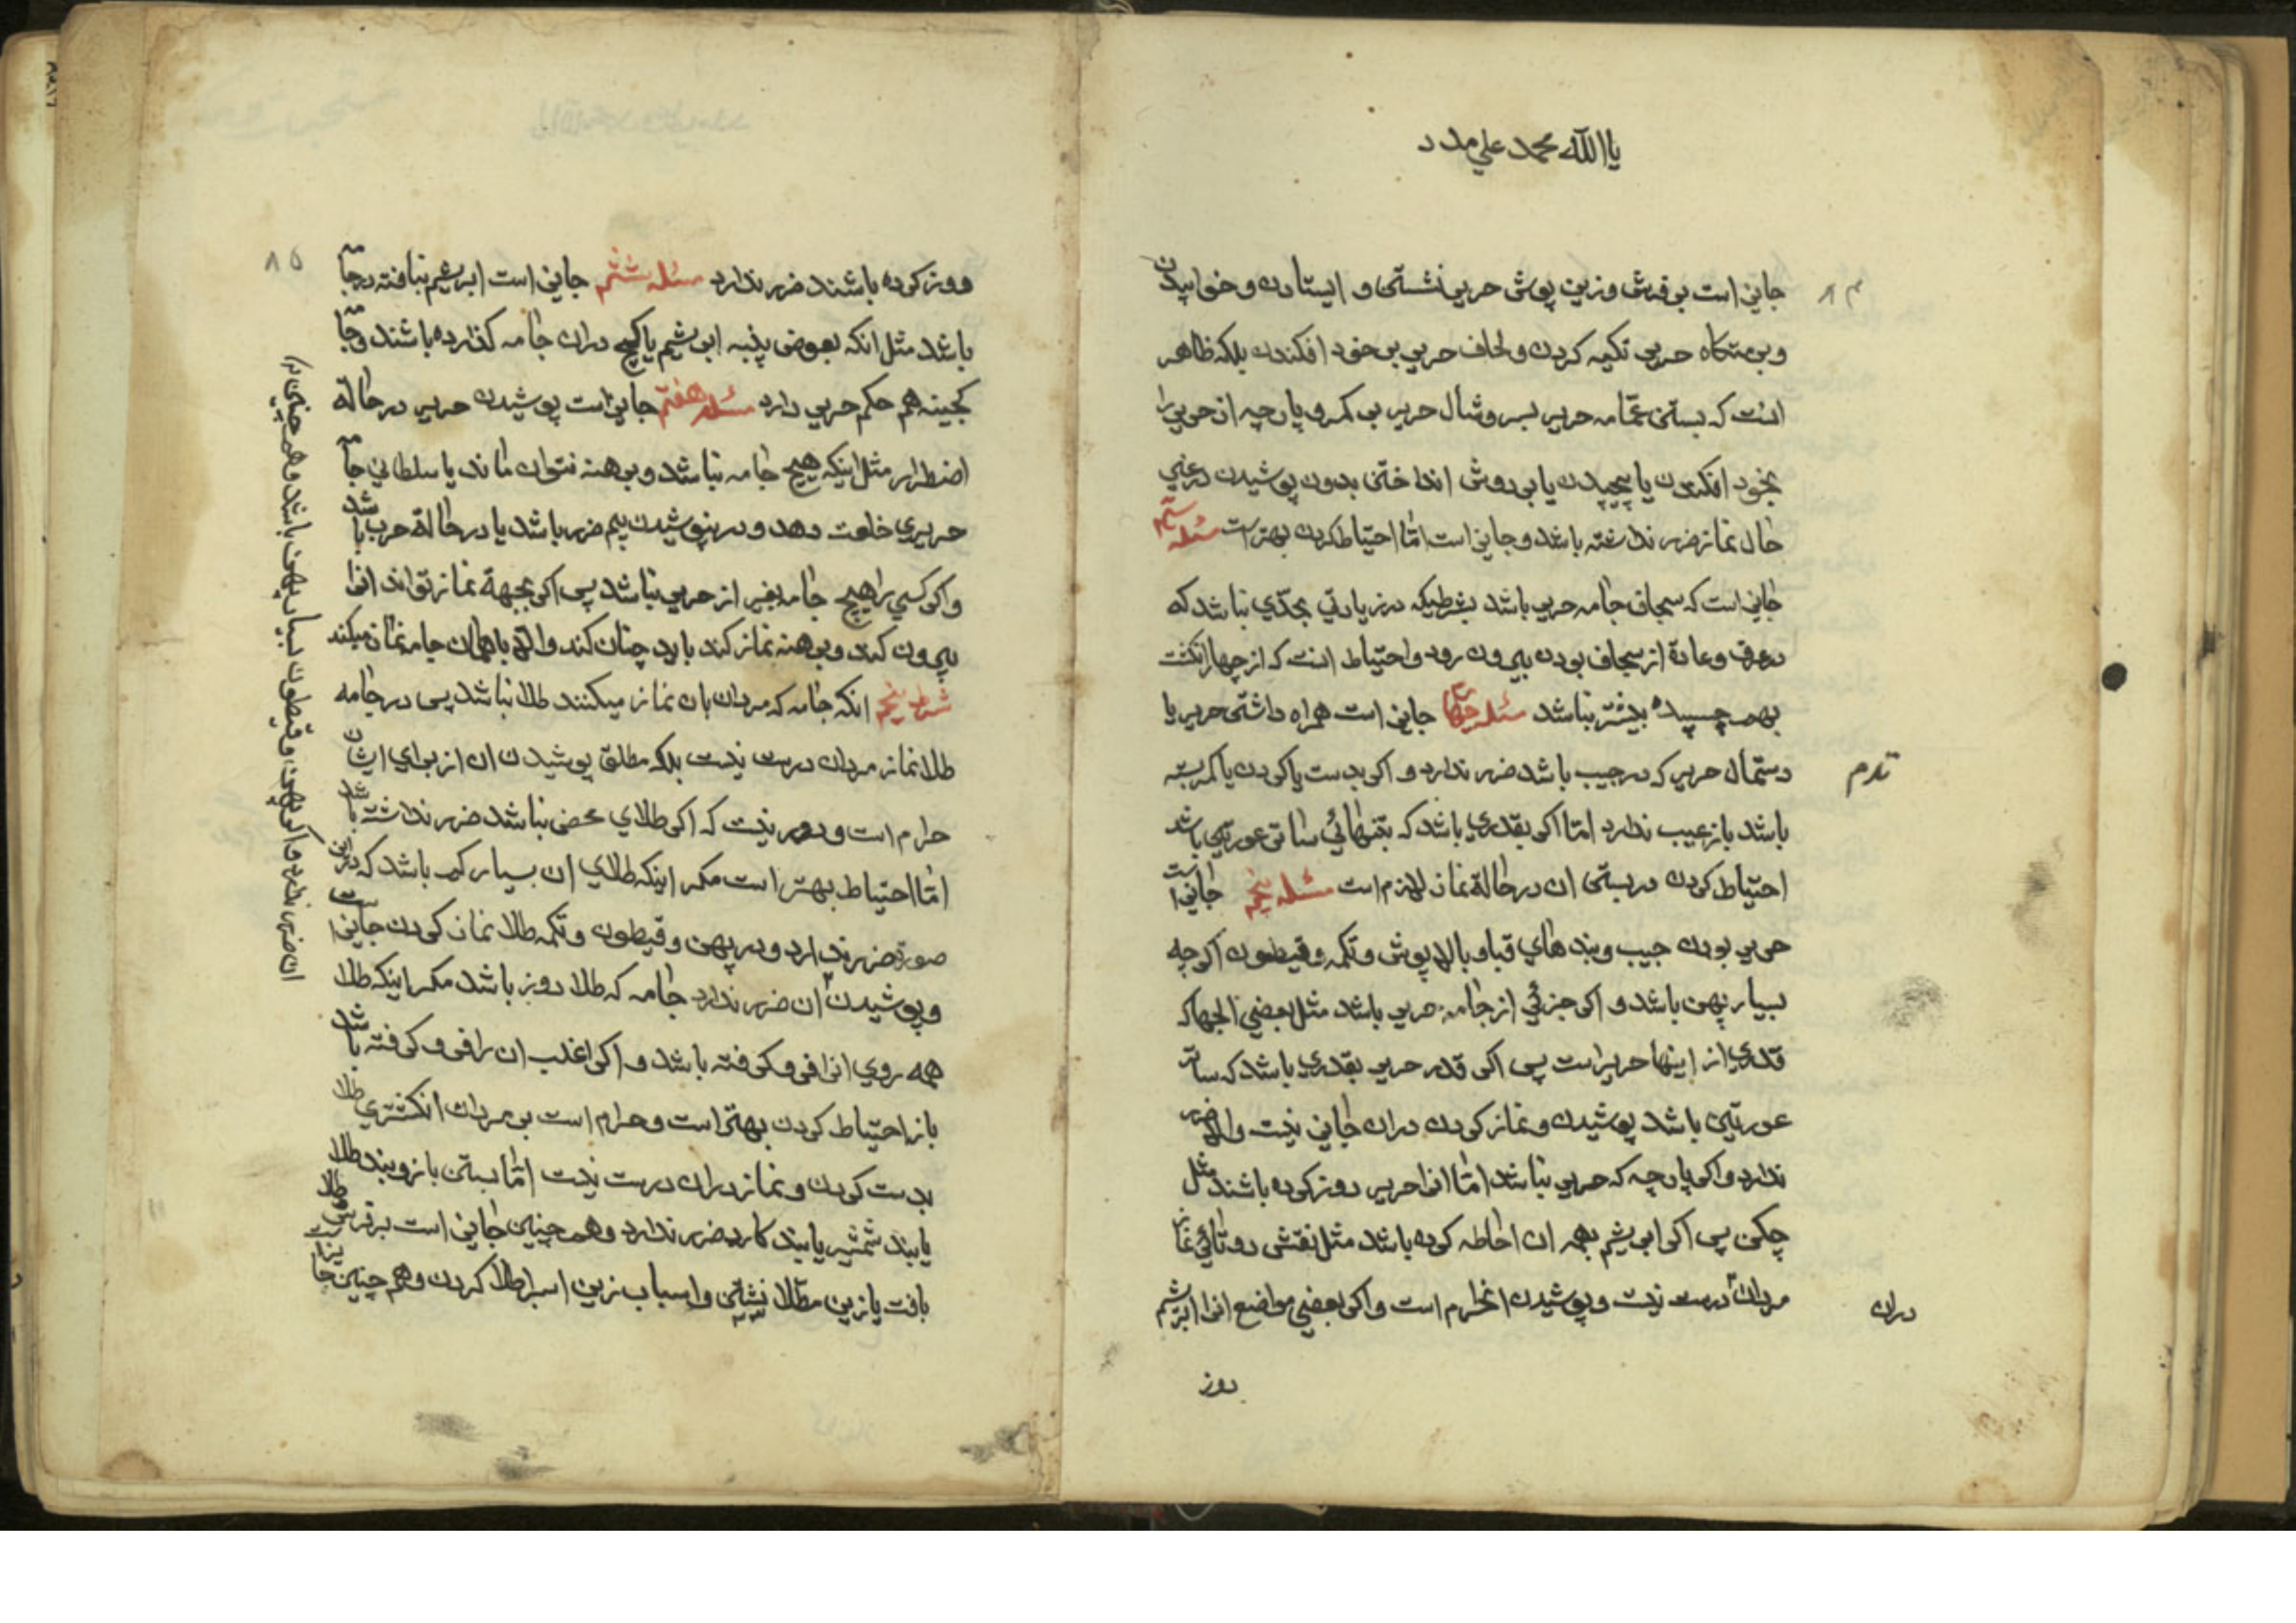 یا الله محمد علی مدد
۸۴
جایز است بر فرش و زین پوش حریر نشستن و ایستادن و خوابیدن
و بر متکاه حریر تکیه کردن و لحاف حریر بر خود افکندن بلکه ظاهر
انست که بستن عمّامه حریر بسر و شال حریر بر کمر و پارچه از حریر را
بخود افکندن یا پیچیدن یا بر دوش انداختن بدون پوشیدن در غیر
حال نماز ضرر نداشته باشد و جایز است امّا احتیاط کردن بهتر است مسئله سیّم
جایز است که سجاف جامه حریر باشد بشرطیکه در زیادتی بحدّی نباشد که
در عرف و عادة از سجاف بودن بیرون رود و احتیاط انست که از چهار انکشت
بهم چسپیده بیشتر نباشد مسئله چهارم جایز است همراه داشتن حریر یا
دستمال حریر که در جیب باشد ضرر ندارد و اکر بدست یا کردن یا کمر بسته
باشد باز عیب ندارد امّا اکر بقدری باشد که بتنهائی ساتر عورتین باشد
احتیاط کردن در بستن ان در حالة نماز لازم است مسئله پنجم جایز است
حریر بودن جیب و بندهای قبا و بالا پوش و تکمه و قیطون اکر چه
بسیار پهن باشد و اکر جزئی از جامه حریر باشد مثل بعضی الجها که
قدری از اینها حریر است پس اکر قدر حریر بقدری باشد که ساتر
عورتین باشد پوشیدن و نماز کردن در ان جایز نیست و الا ضرر
ندارد و اکر پارچه که حریر نباشد امّا انرا حریر دوز کرده باشند مثل
چکن پس اکر ابریشم بهمه ان احاطه کرده باشد مثل نقش دوتائی نماز
مردان در ست نیست و پوشیدن انحرام است و اکر بعضی مواضع انرا ابریشم
دران
دوز
۸۵
دوز کرده باشند ضرر ندارد مسئله ششم جایز است ابریشم نبافته در جامه
باشد مثل انکه بعوض پنبه ابریشم یا کج در ان جامه کذارده باشند و جامه
کجینه هم حکم حریر دارد مسئله هفتم جایز است پوشیدن حریر در حالة
اضطرار مثل اینکه هیچ جامه نباشد و برهنه نتوان ماند یا سلطانی جامه
حریری خلعت دهد و در نپوشیدن بیم ضرر باشد یا در حالة حرب باشد
و اکر کسی را هیچ جامه بغیر از حریر نباشد پس اکر بجهة نماز تواند انرا
بیرون کند و برهنه نماز کند باید چنان کند و الا با همان جامه نماز میکند
شرط پنجم انکه جامه که مردان بان نماز میکنند طلا نباشد پس در جامه
طلا نماز مردان درست نیست بلکه مطلق پوشیدن ان از برای ایشان
حرام است و دور نیست که اکر طلای محض نباشد ضرر نداشته باشد
امّا احتیاط بهتر است مکر اینکه طلای ان بسیار کم باشد که در این
صورة ضرر ندارد و در پهن و قیطون و تکمه طلا نماز کردن جایز است
و پوشیدن ان ضرر ندارد جامه که طلا دوز باشد مکر اینکه طلا
همه روی انرا فرو کرفته باشد و اکر اغلب ان را فرو کرفته باشد
باز احتیاط کردن بهتر است و حرام است بر مردان انکشتری طلا
بدست کردن و نماز در ان درست نیست امّا بستن بازوبند طلا
یا بند شمشیر یا بند کارد ضرر ندارد و هم چنین جایز است بر فرش طلا
بافت یا زین مطلّا نشستن و اسباب زین اسب را طلا کردن و هم چنین جا